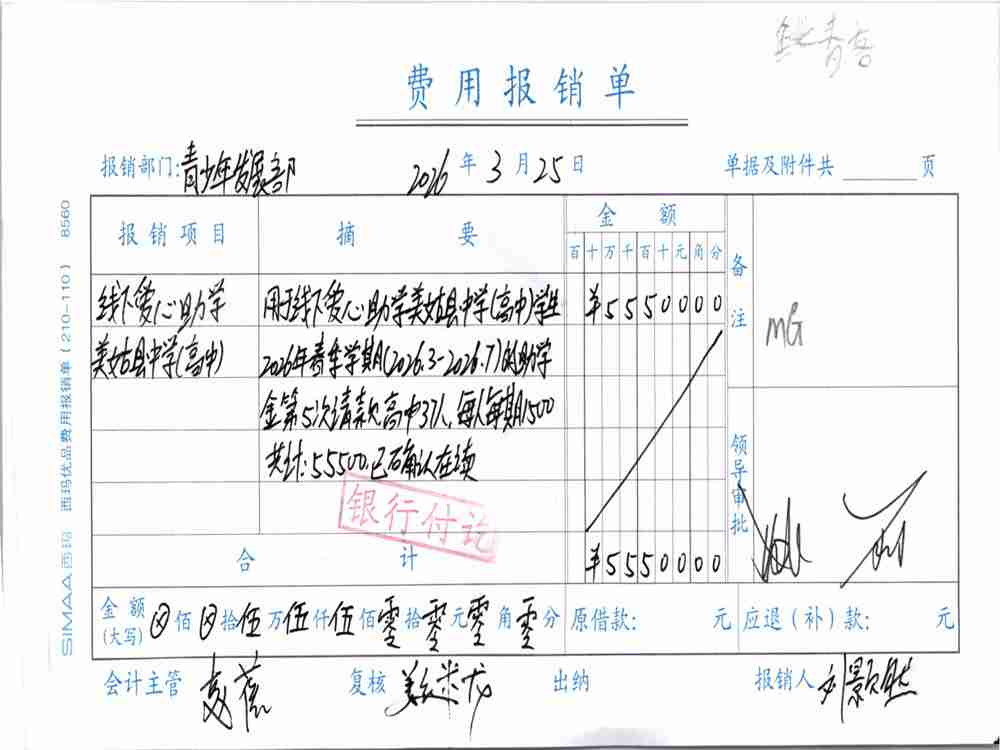 费用报销单
报销部门:青少年发展部 2026年3月25日 单据及附件共 页
报销项目 摘要 金额 备注
百十万千百十元角分
线下爱心助学 用于线下爱心助学美姑县中学(高中)学生 ¥5550000
美姑县中学(高中) 2026年春季学期(2026.3-2026.7)的助学
MG
金第5次请款高中37人,每人每期1500
共计:55500,已确认在读
领导审批
银行付讫
合计 ¥5550000
金额(大写) 佰 拾伍万伍仟伍佰零拾零元零角零分 原借款: 元 应退(补)款: 元
会计主管 复核 出纳 报销人 刘景
SIMAA 西玛 西玛优品费用报销单(210-110) 8560